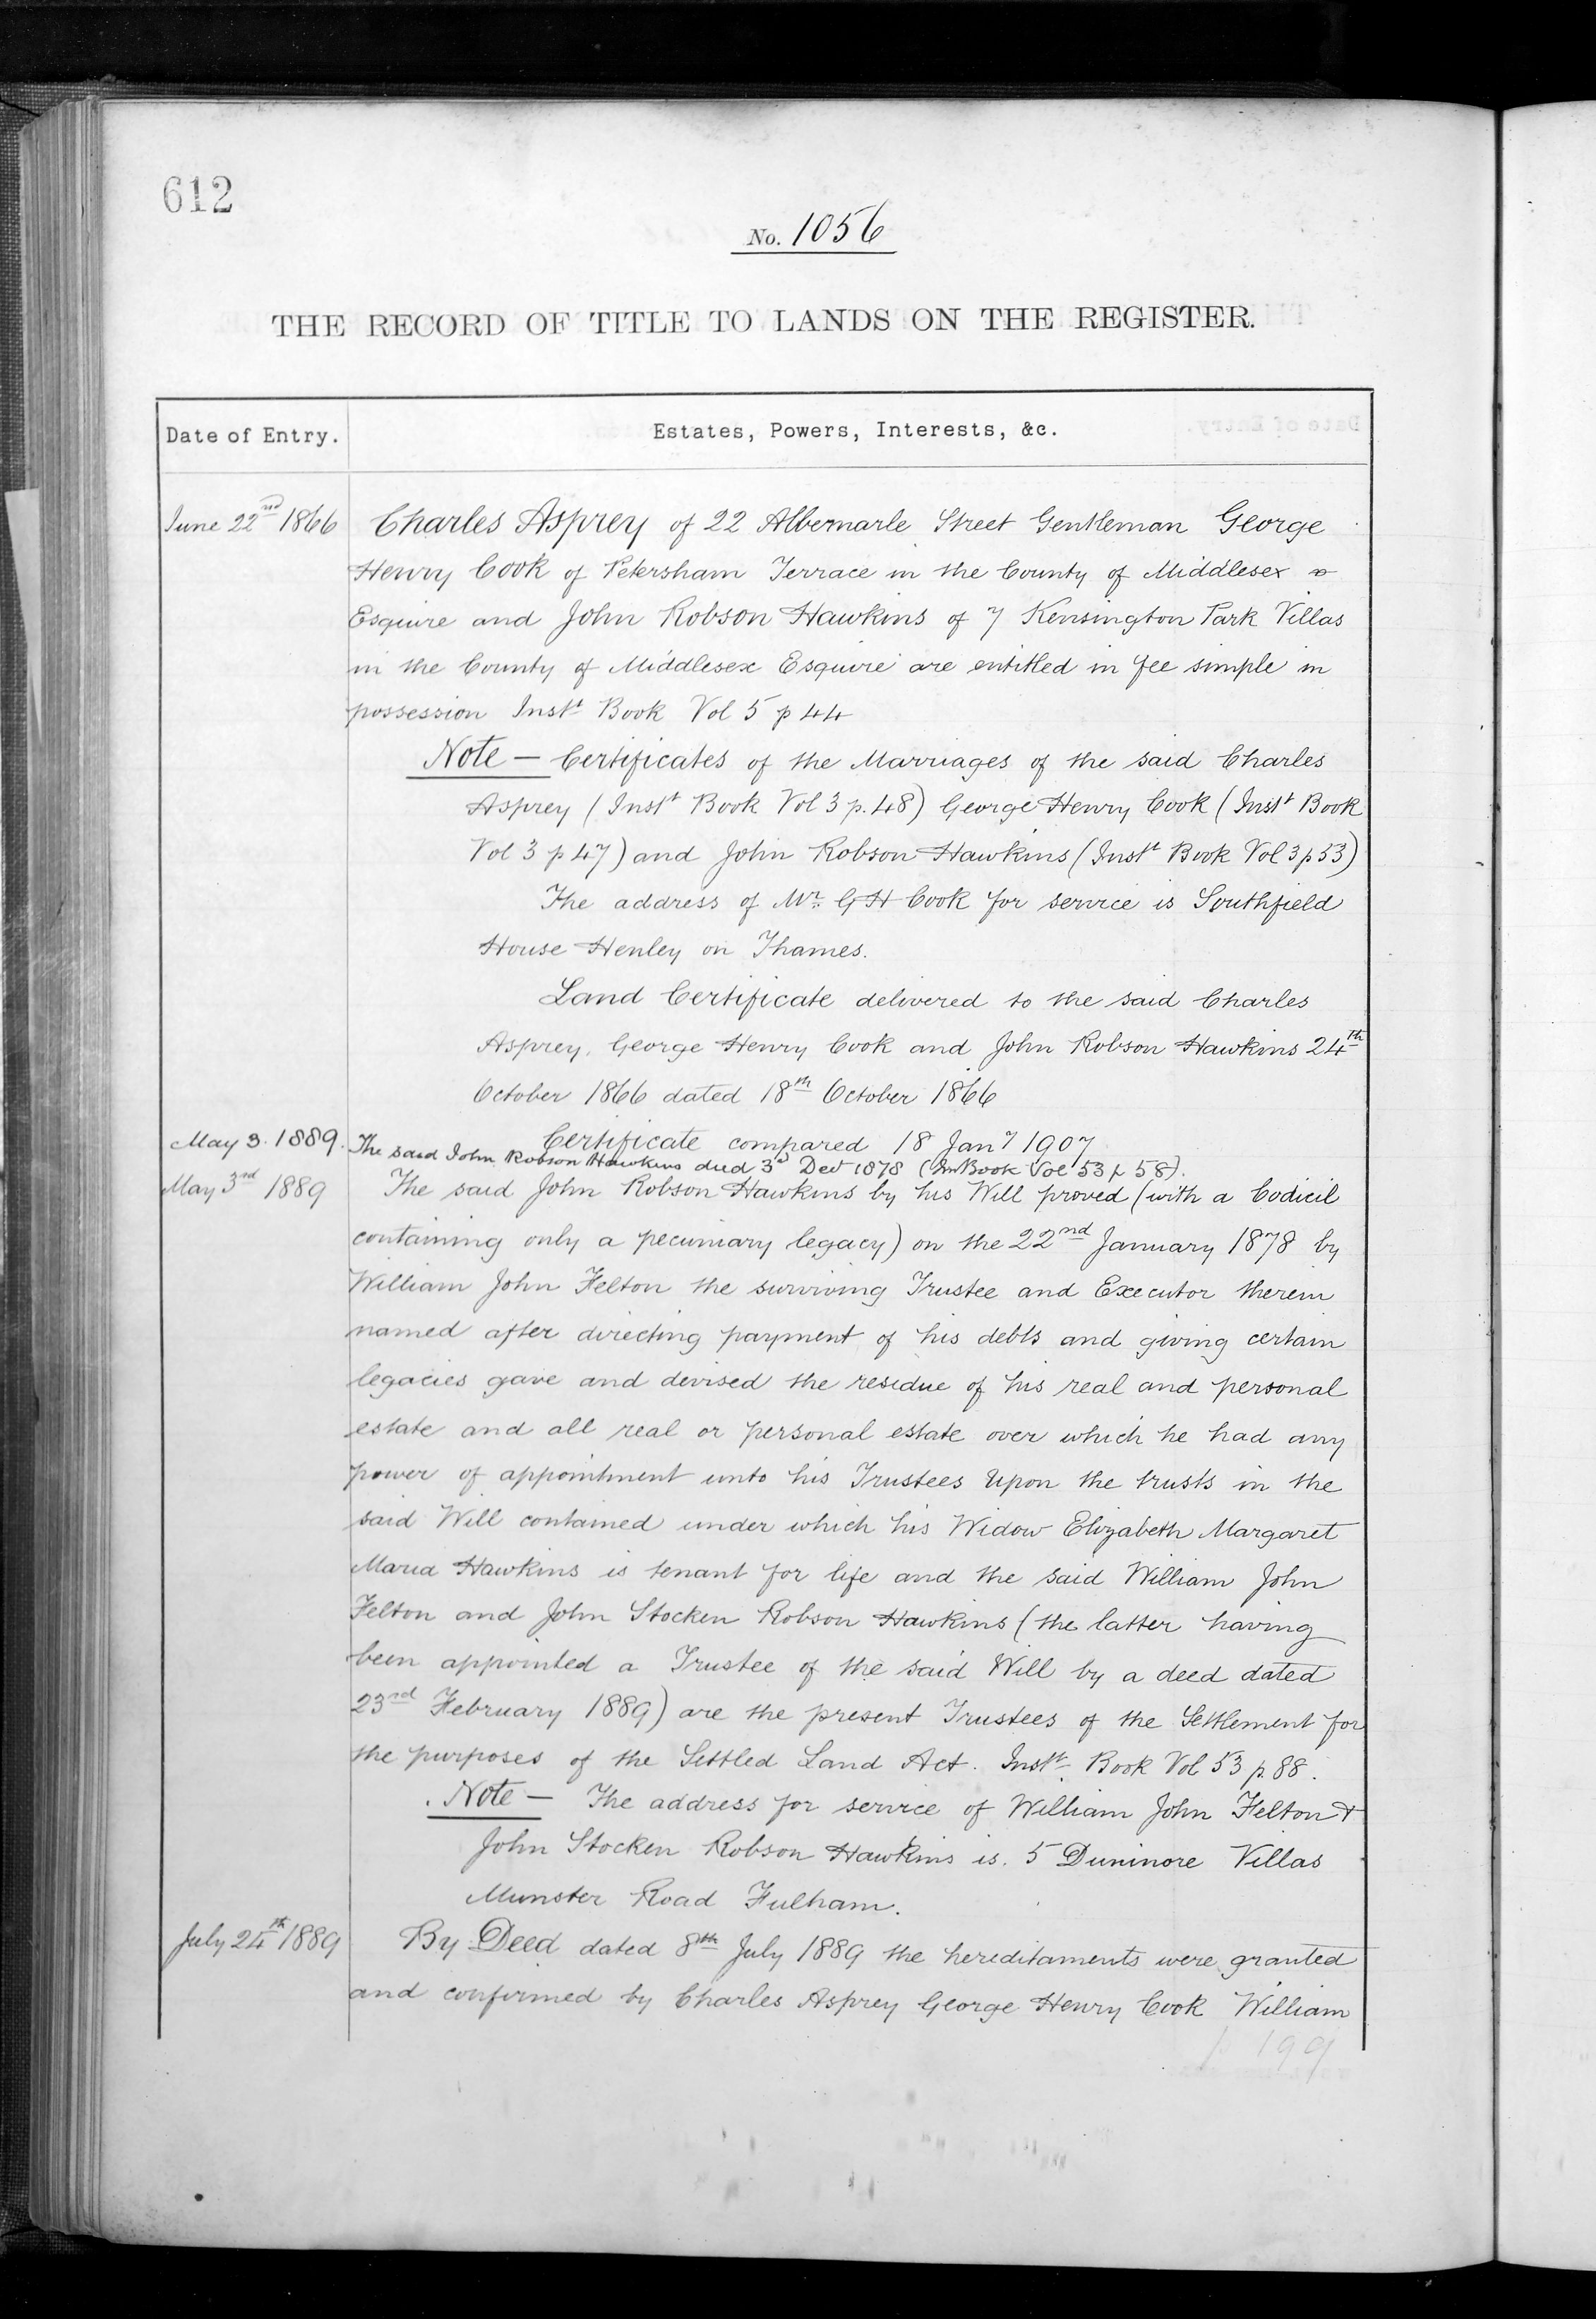 612
No. 1056
THE RECORD OF TITLE TO LANDS ON THE REGISTER.
Date of Entry.
Estates, Powers, Interests, &c.
June 22nd 1866
Charles Asprey of 22 Albemarle Street Gentleman George
Henry Cook of Petersham Terrace in the County of Middlesex
Esquire and John Robson Hawkins of 7 Kensington Park Villas
in the County of Middlesex Esquire are entitled in fee simple in
possession Instt Book Vol 5 p 44
Note — Certificates of the Marriages of the said Charles
Asprey (Instt Book Vol 3 p. 48) George Henry Cook (Instt Book
Vol 3 p 47) and John Robson Hawkins (Instt Book Vol 3 p 53)
The address of Mr. G H Cook for service is Southfield
House Henley on Thames.
Land Certificate delivered to the said Charles
Asprey, George Henry Cook and John Robson Hawkins 24th
October 1866 dated 18th October 1866
Certificate compared 18 Jany 1907
May 3. 1889. The said John Robson Hawkins died 3d Decr 1878 (In Book Vol 53 p 58).
May 3rd 1889
The said John Robson Hawkins by his Will proved (with a Codicil
containing only a pecuniary legacy) on the 22nd January 1878 by
William John Felton the surviving Trustee and Executor therein
named after directing payment of his debts and giving certain
legacies gave and devised the residue of his real and personal
estate and all real or personal estate over which he had any
power of appointment unto his Trustees Upon the trusts in the
said Will contained under which his Widow Elizabeth Margaret
Maria Hawkins is tenant for life and the said William John
Felton and John Stocken Robson Hawkins (the latter having
been appointed a Trustee of the said Will by a deed dated
23rd February 1889) are the present Trustees of the Settlement for
the purposes of the Settled Land Act. Instt Book Vol 53 p. 88.
Note — The address for service of William John Felton &
John Stocken Robson Hawkins is. 5 Duninore Villas
Munster Road Fulham.
July 24th 1889
By Deed dated 8th July 1889 the hereditaments were granted
and confirmed by Charles Asprey George Henry Cook William
p 199